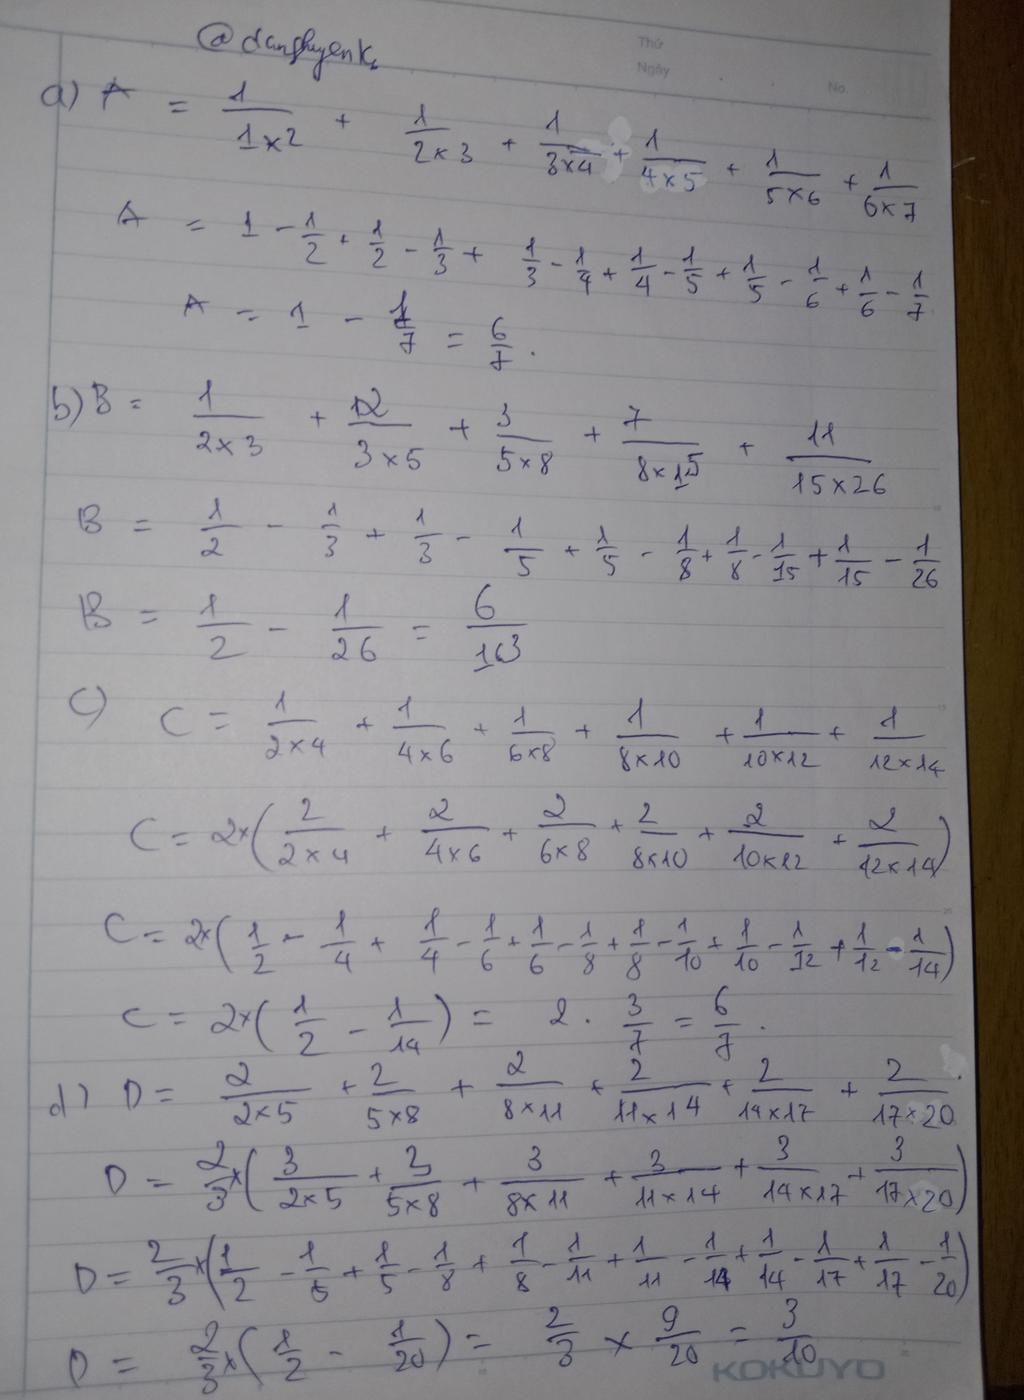 Thứ
Ngày
No.
a) A = 1/(1×2) + 1/(2×3) + 1/(3×4) + 1/(4×5) + 1/(5×6) + 1/(6×7)
A = 1 - 1/2 + 1/2 - 1/3 + 1/3 - 1/4 + 1/4 - 1/5 + 1/5 - 1/6 + 1/6 - 1/7
A = 1 - 1/7 = 6/7.
b) B = 1/(2×3) + 2/(3×5) + 3/(5×8) + 7/(8×15) + 11/(15×26)
B = 1/2 - 1/3 + 1/3 - 1/5 + 1/5 - 1/8 + 1/8 - 1/15 + 1/15 - 1/26
B = 1/2 - 1/26 = 6/13
c) C = 1/(2×4) + 1/(4×6) + 1/(6×8) + 1/(8×10) + 1/(10×12) + 1/(12×14)
C = 2×(2/(2×4) + 2/(4×6) + 2/(6×8) + 2/(8×10) + 2/(10×12) + 2/(12×14))
C = 2×(1/2 - 1/4 + 1/4 - 1/6 + 1/6 - 1/8 + 1/8 - 1/10 + 1/10 - 1/12 + 1/12 - 1/14)
C = 2×(1/2 - 1/14) = 2 . 3/7 = 6/7.
d) D = 2/(2×5) + 2/(5×8) + 2/(8×11) + 2/(11×14) + 2/(14×17) + 2/(17×20)
D = 2/3×(3/(2×5) + 3/(5×8) + 3/(8×11) + 3/(11×14) + 3/(14×17) + 3/(17×20))
D = 2/3×(1/2 - 1/5 + 1/5 - 1/8 + 1/8 - 1/11 + 1/11 - 1/14 + 1/14 - 1/17 + 1/17 - 1/20)
D = 2/3×(1/2 - 1/20) = 2/3 × 9/20 = 3/10
KOKUYO